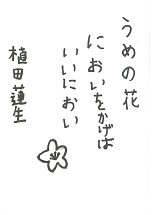 うめの花
においをかげば
いいにおい
植田蓮生